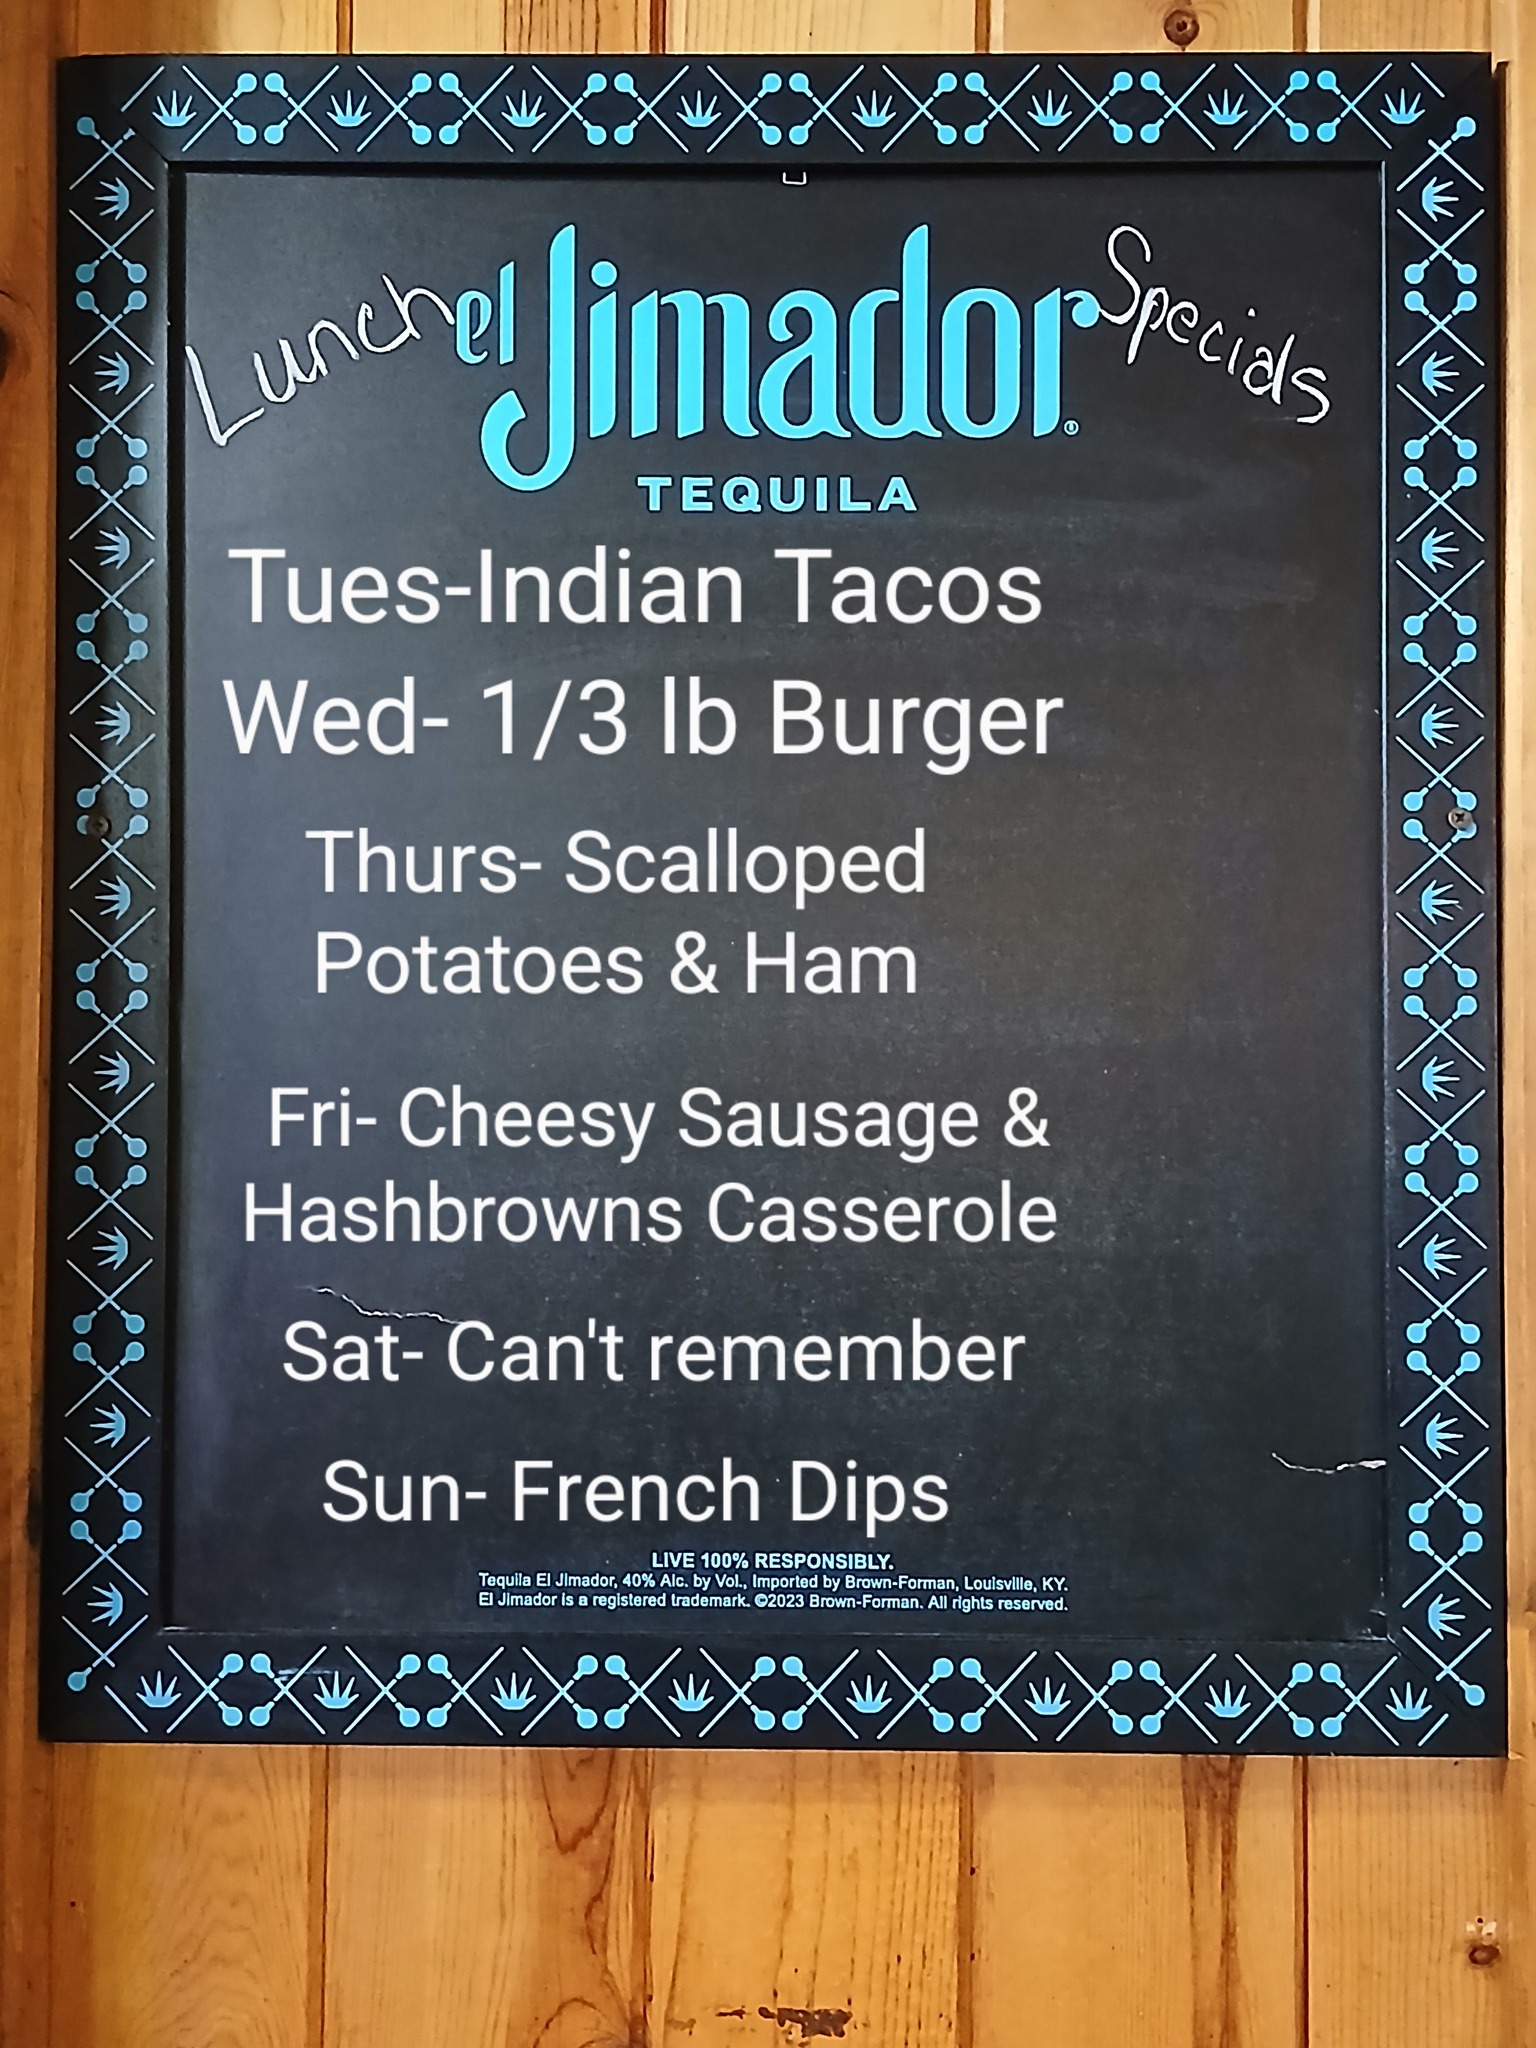 Lunch el Jimador® Specials
TEQUILA
Tues-Indian Tacos
Wed- 1/3 lb Burger
Thurs- Scalloped
Potatoes & Ham
Fri- Cheesy Sausage &
Hashbrowns Casserole
Sat- Can't remember
Sun- French Dips
LIVE 100% RESPONSIBLY.
Tequila El Jimador, 40% Alc. by Vol., Imported by Brown-Forman, Louisville, KY.
El Jimador is a registered trademark. ©2023 Brown-Forman. All rights reserved.